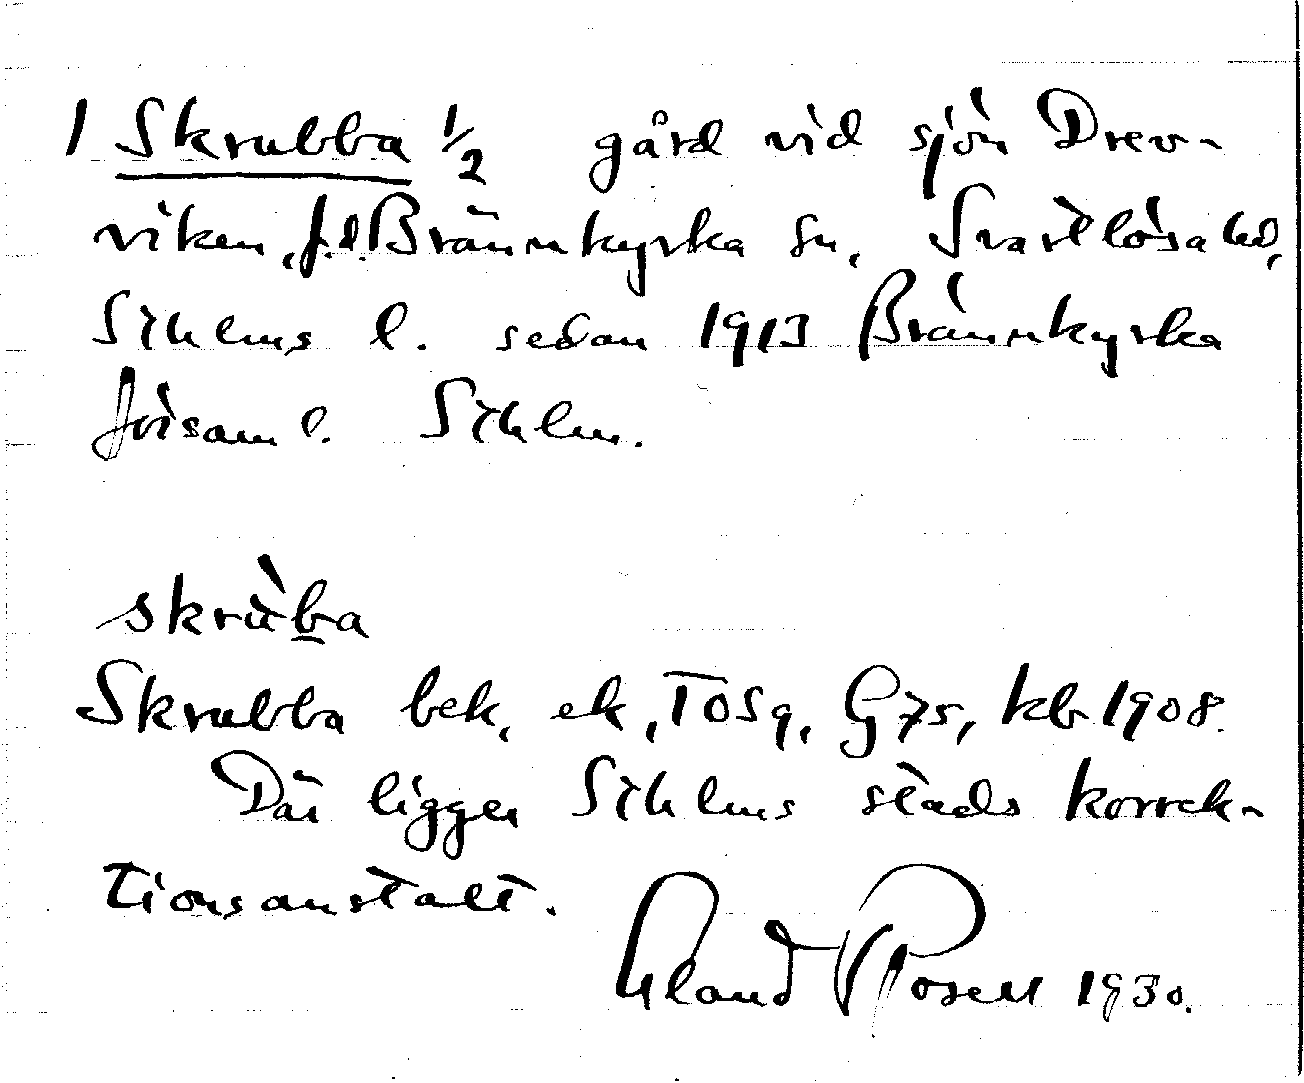 1 Skrubba 1/2 gård vid sjön Drev-
viken, f.d. Brännkyrka sn, Svartlösa hd,
Sthlms l. sedan 1913 Brännkyrka
förs​aml. Sthlm.
skrùba
Skrubba bek, ek, TOSq, G75, kb 1908.
Där ligger Sthlms stads korrek-
tionsanstalt.
Erland Rosell 1930.